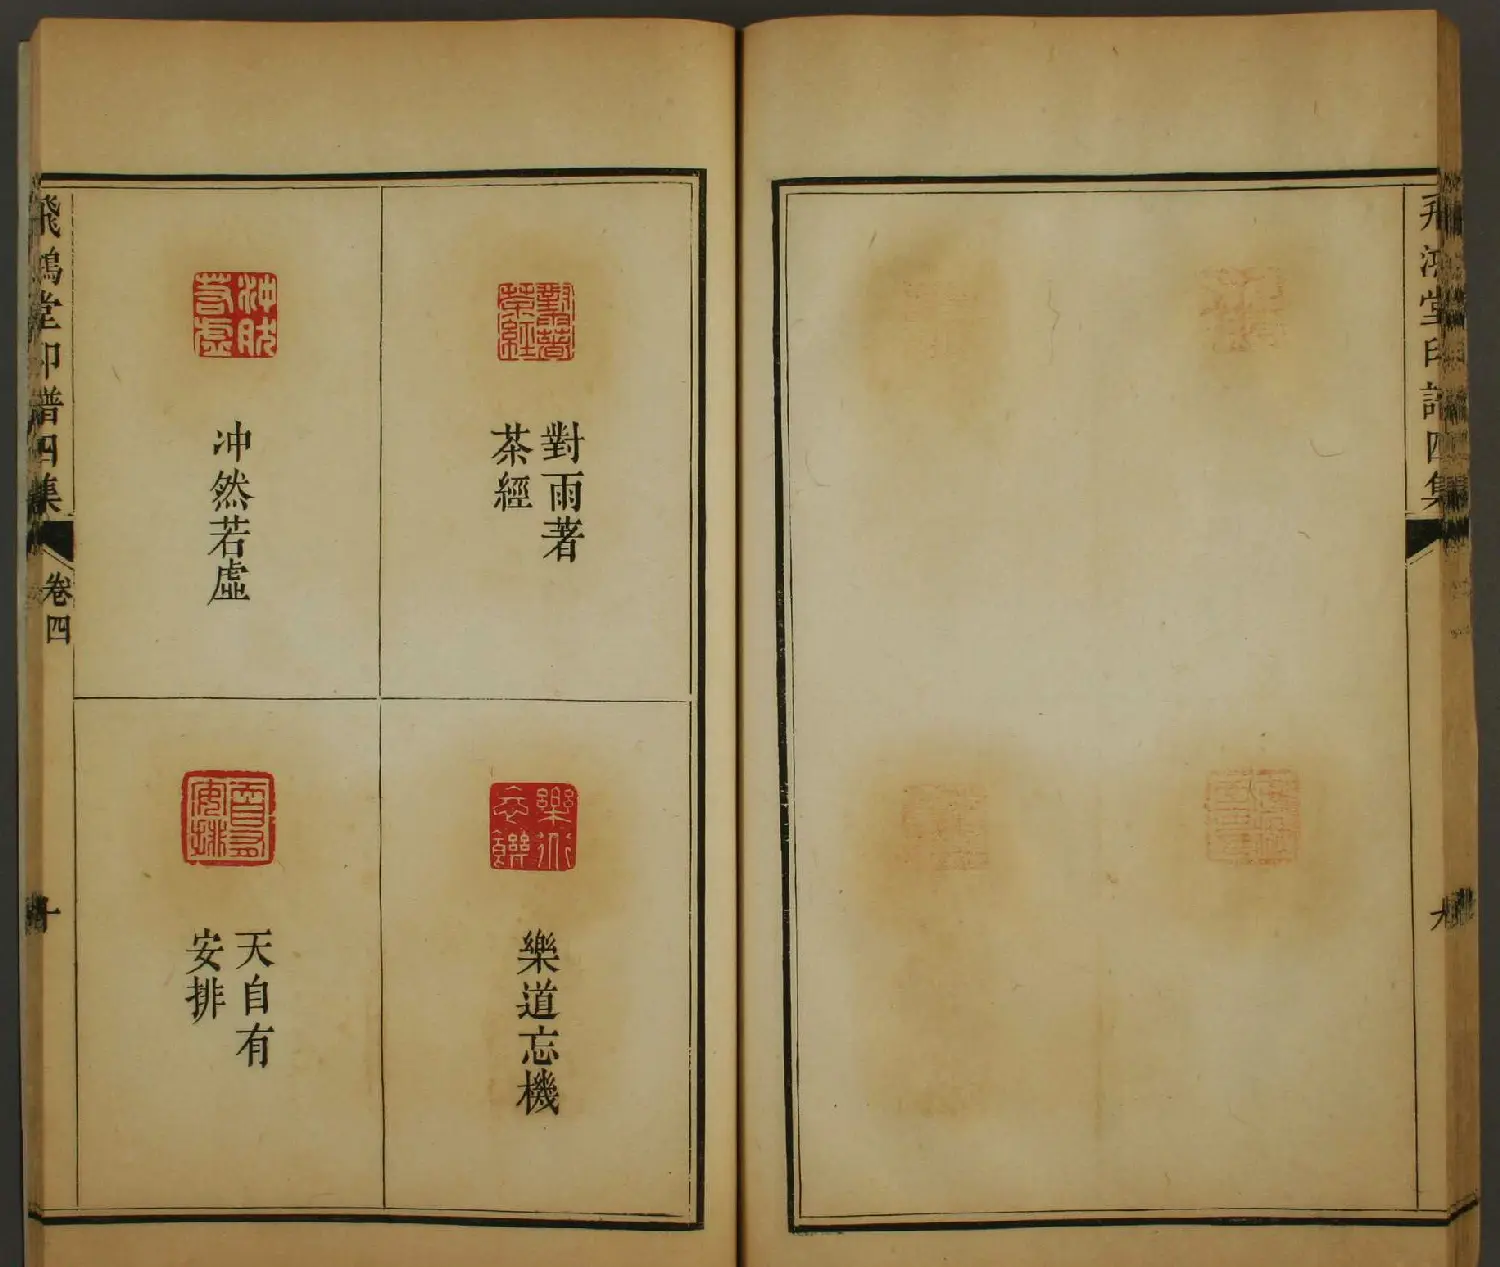 飛鴻堂印譜四集
九
對雨著
茶經
樂道忘機
冲然若虛
天自有
安排
飛鴻堂印譜四集
卷四
十